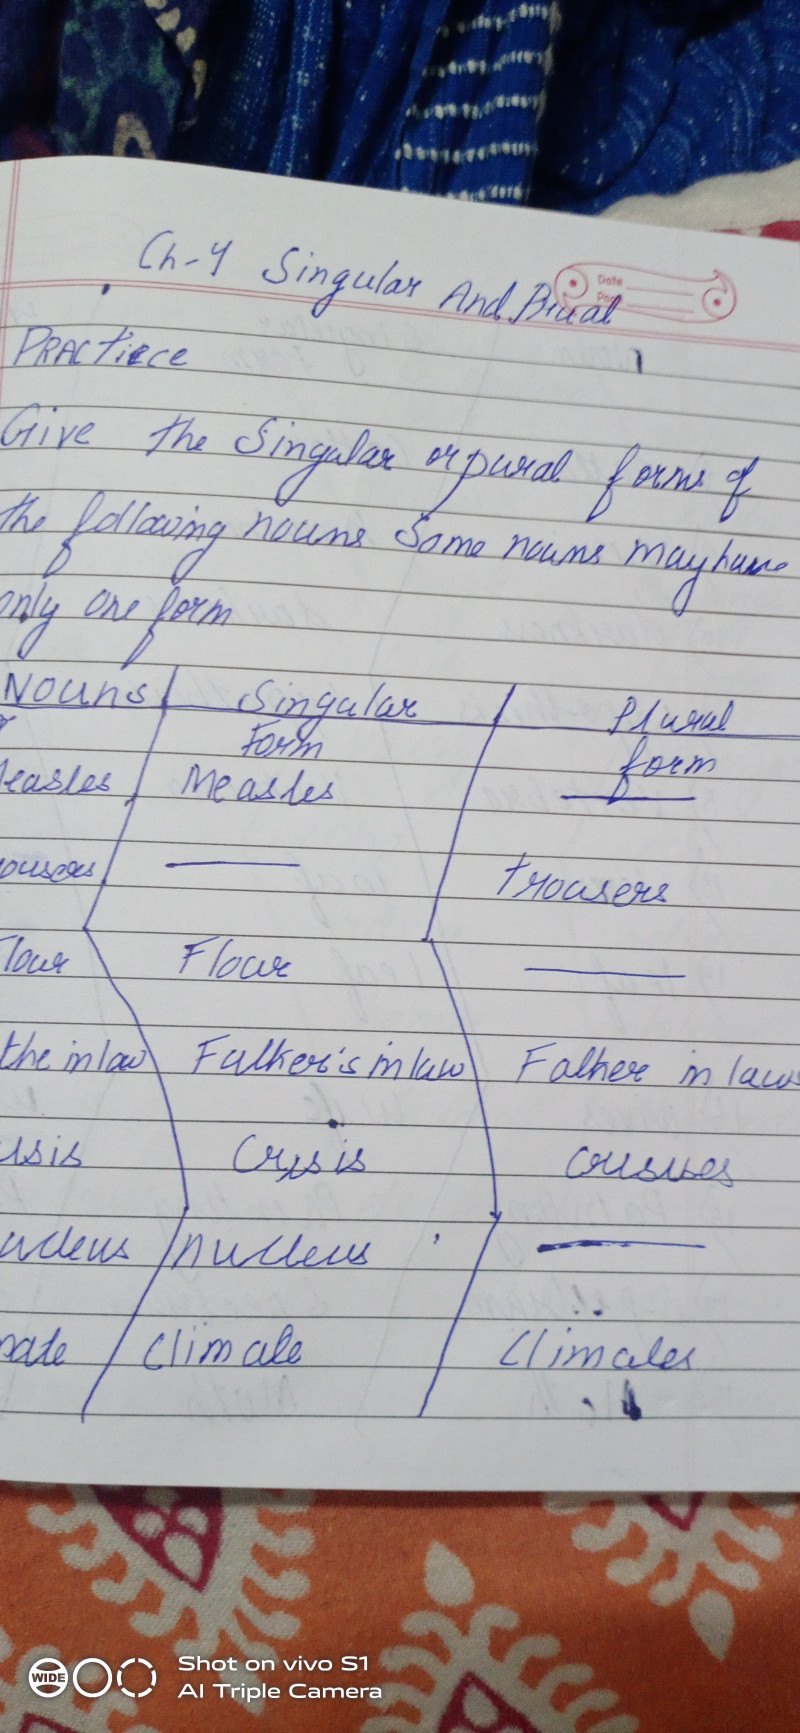 Ch-4 Singular And Prual
Date
PRACTiece
Give the Singular or pural forms of
the following nouns Some nouns may have
only one form
Nouns Singular Plural
Form form
Measles Measles
rousers trousers
Flour Flour
the in law Father's in law Father in laws
isis Crisis
ucleus nucleus
mate Climate Climates
WIDE
Shot on vivo S1
AI Triple Camera